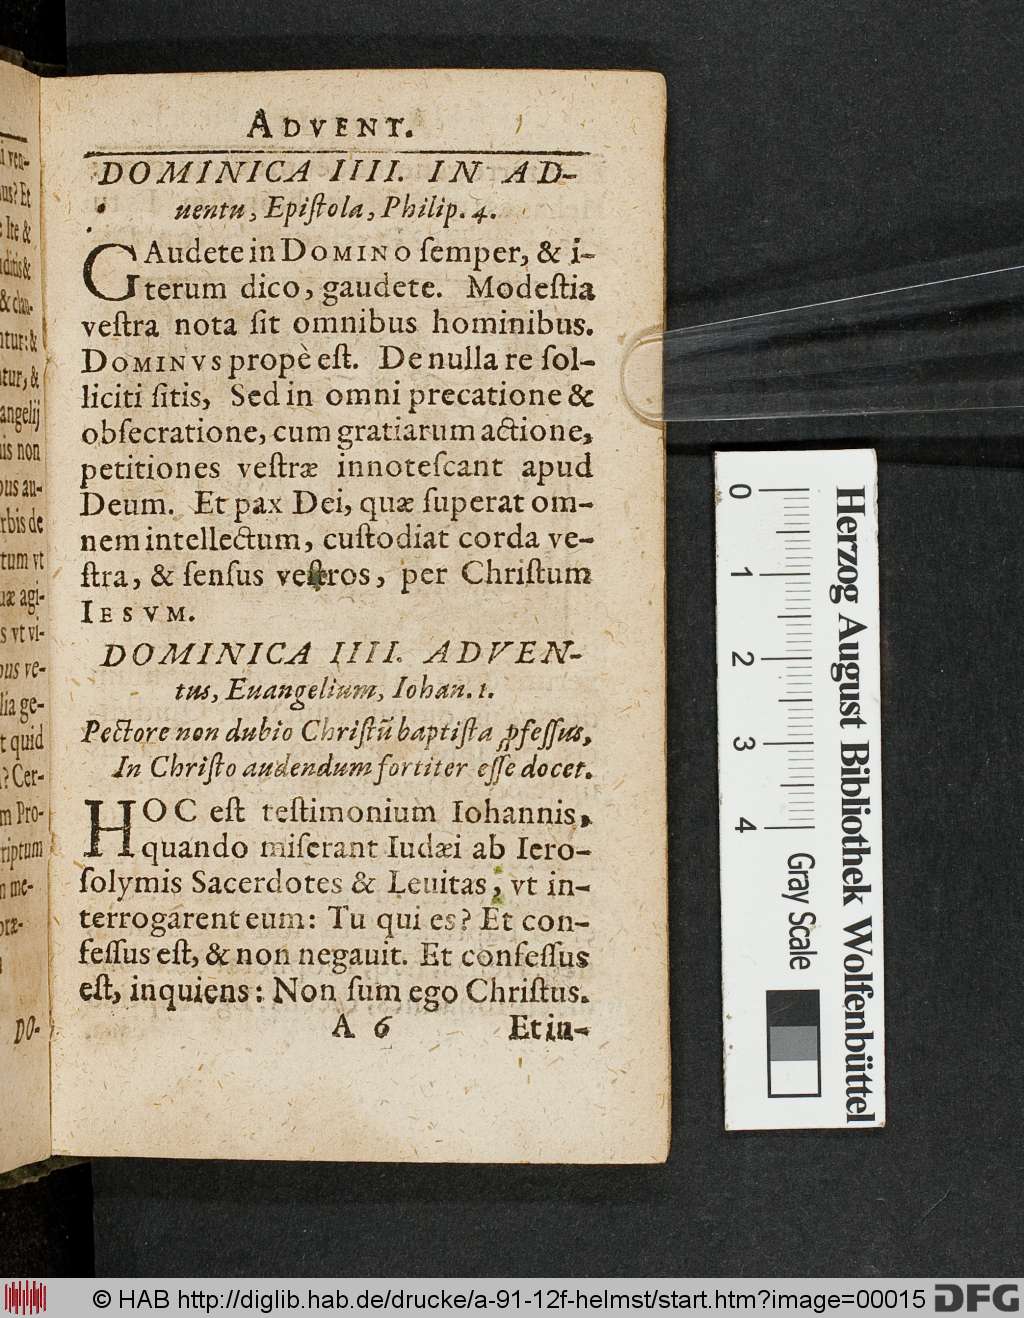 ADVENT.
DOMINICA IIII. IN AD-
uentu, Epiſtola, Philip. 4.
GAudete in DOMINO ſemper, & i-
terum dico, gaudete. Modeſtia
veſtra nota ſit omnibus hominibus.
DOMINVS propè eſt. De nulla re ſol-
liciti ſitis, Sed in omni precatione &
obſecratione, cum gratiarum actione,
petitiones veſtræ innoteſcant apud
Deum. Et pax Dei, quæ ſuperat om-
nem intellectum, cuſtodiat corda ve-
ſtra, & ſenſus veſtros, per Chriſtum
IESVM.
DOMINICA IIII. ADVEN-
tus, Euangelium, Iohan. 1.
Pectore non dubio Chriſtũ baptiſta ꝓfeſſus,
In Chriſto audendum fortiter eſſe docet.
HOC eſt teſtimonium Iohannis,
quando miſerant Iudæi ab Iero-
ſolymis Sacerdotes & Leuitas, vt in-
terrogarent eum: Tu qui es? Et con-
feſſus eſt, & non negauit. Et confeſſus
eſt, inquiens: Non ſum ego Chriſtus.
A 6 Et in-
ven-
us? Et
Ite &
&
& clau-
ntur: &
tur, &
angelij
is non
bus au-
rbis de
tum vt
uæ agi-
s vt vi-
bus ve-
lia ge-
t quid
? Cer-
m Pro-
riptum
n me-
DO-
0 1 2 3 4
Gray Scale
Herzog August Bibliothek Wolfenbüttel
© HAB http://diglib.hab.de/drucke/a-91-12f-helmst/start.htm?image=00015 DFG